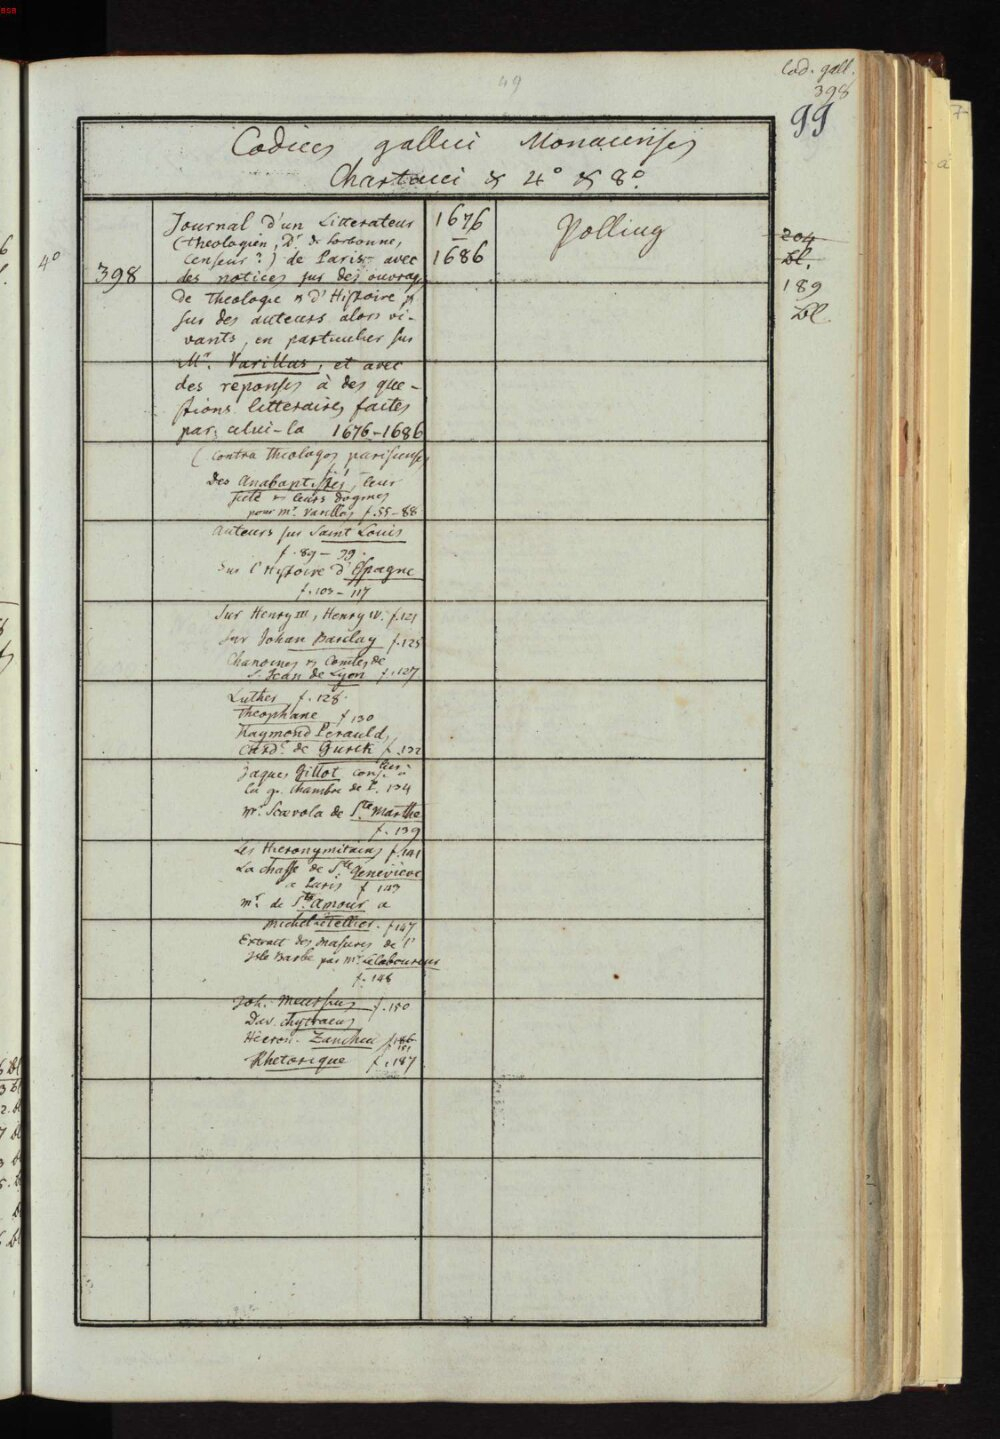 49
Cod. gall.
398
99
Codices gallici Monacenses
Chartacei & 4° & 8°.
4°
398
Journal d'un Litterateur
(theologien, Dr. de Sorbonne,
Censeur?) de Paris avec
des notices sur des ouvrag.
de Theologie & d'Histoire &
sur des auteurs alors vi-
vants, en particulier sur
Mr. Varillas, et avec
des reponses à des que-
stions litteraires faites
par celui-la 1676-1686
1676
—
1686
Polling
204
Bl.
189
Bl.
(contra theologos parisienses
f. 1
Des Anabaptistes, leur
secte & leurs dogmes
pour Mr. Varillas f. 55-88
Auteurs sur Saint Louis
f. 89 - 99.
Sur l'Histoire d'Espagne
f. 103 - 117
Sur Henry III, Henry IV. f. 121
Sur Johan Barclay f. 125
Chanoines & Comtes de
S. Jean de Lyon f. 127
Luther, f. 128.
Theophane f 130
Raymond Perauld,
Card. de Gurck f. 132
Jaques Gillot
la gr. chambre de P. 134
Mr. Scevola de Ste Marthe
f. 139
Les Hieronymitains f. 141
La chasse de Ste Genevieve
a Paris f 143
Mr. de St. Amour a
Michel le Tellier. f 147
Extrait des Masures de l'
Isle Barbe par Mr. le Laboureur
f. 148
Joh. Meursius f. 150
Dav. Chytraeus
Hieron. Zanchii f. 186
151
Rhetorique f. 187